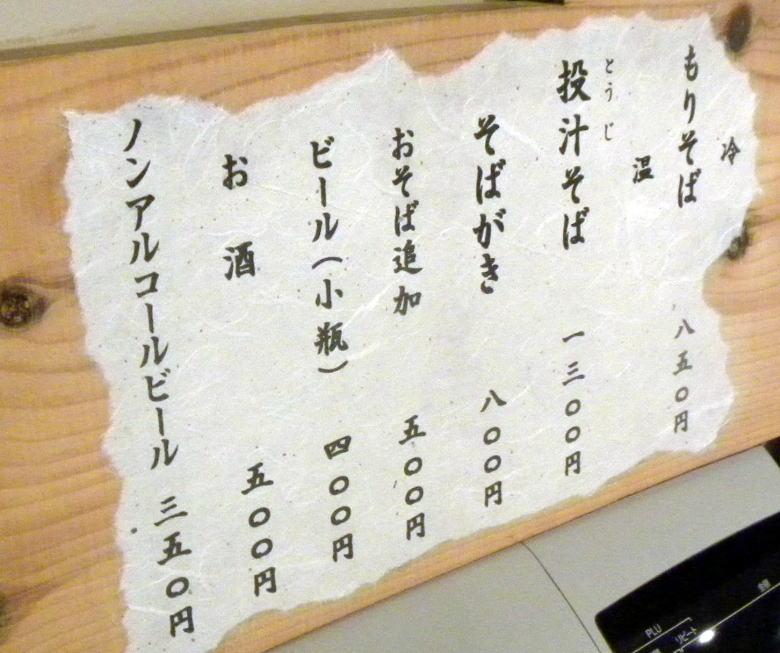 冷
もりそば 八五〇円
温
とうじ
投汁そば 一三〇〇円
そばがき 八〇〇円
おそば追加 五〇〇円
ビール(小瓶) 四〇〇円
お酒 五〇〇円
ノンアルコールビール 三五〇円
PLU
リピート